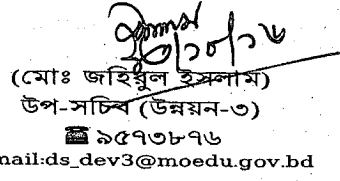 ৩/১০/১৬
(মোঃ জহিরুল ইসলাম)
উপ-সচিব (উন্নয়ন-৩)
☎ ৯৫৭৩৮৭৬
mail:ds_dev3@moedu.gov.bd